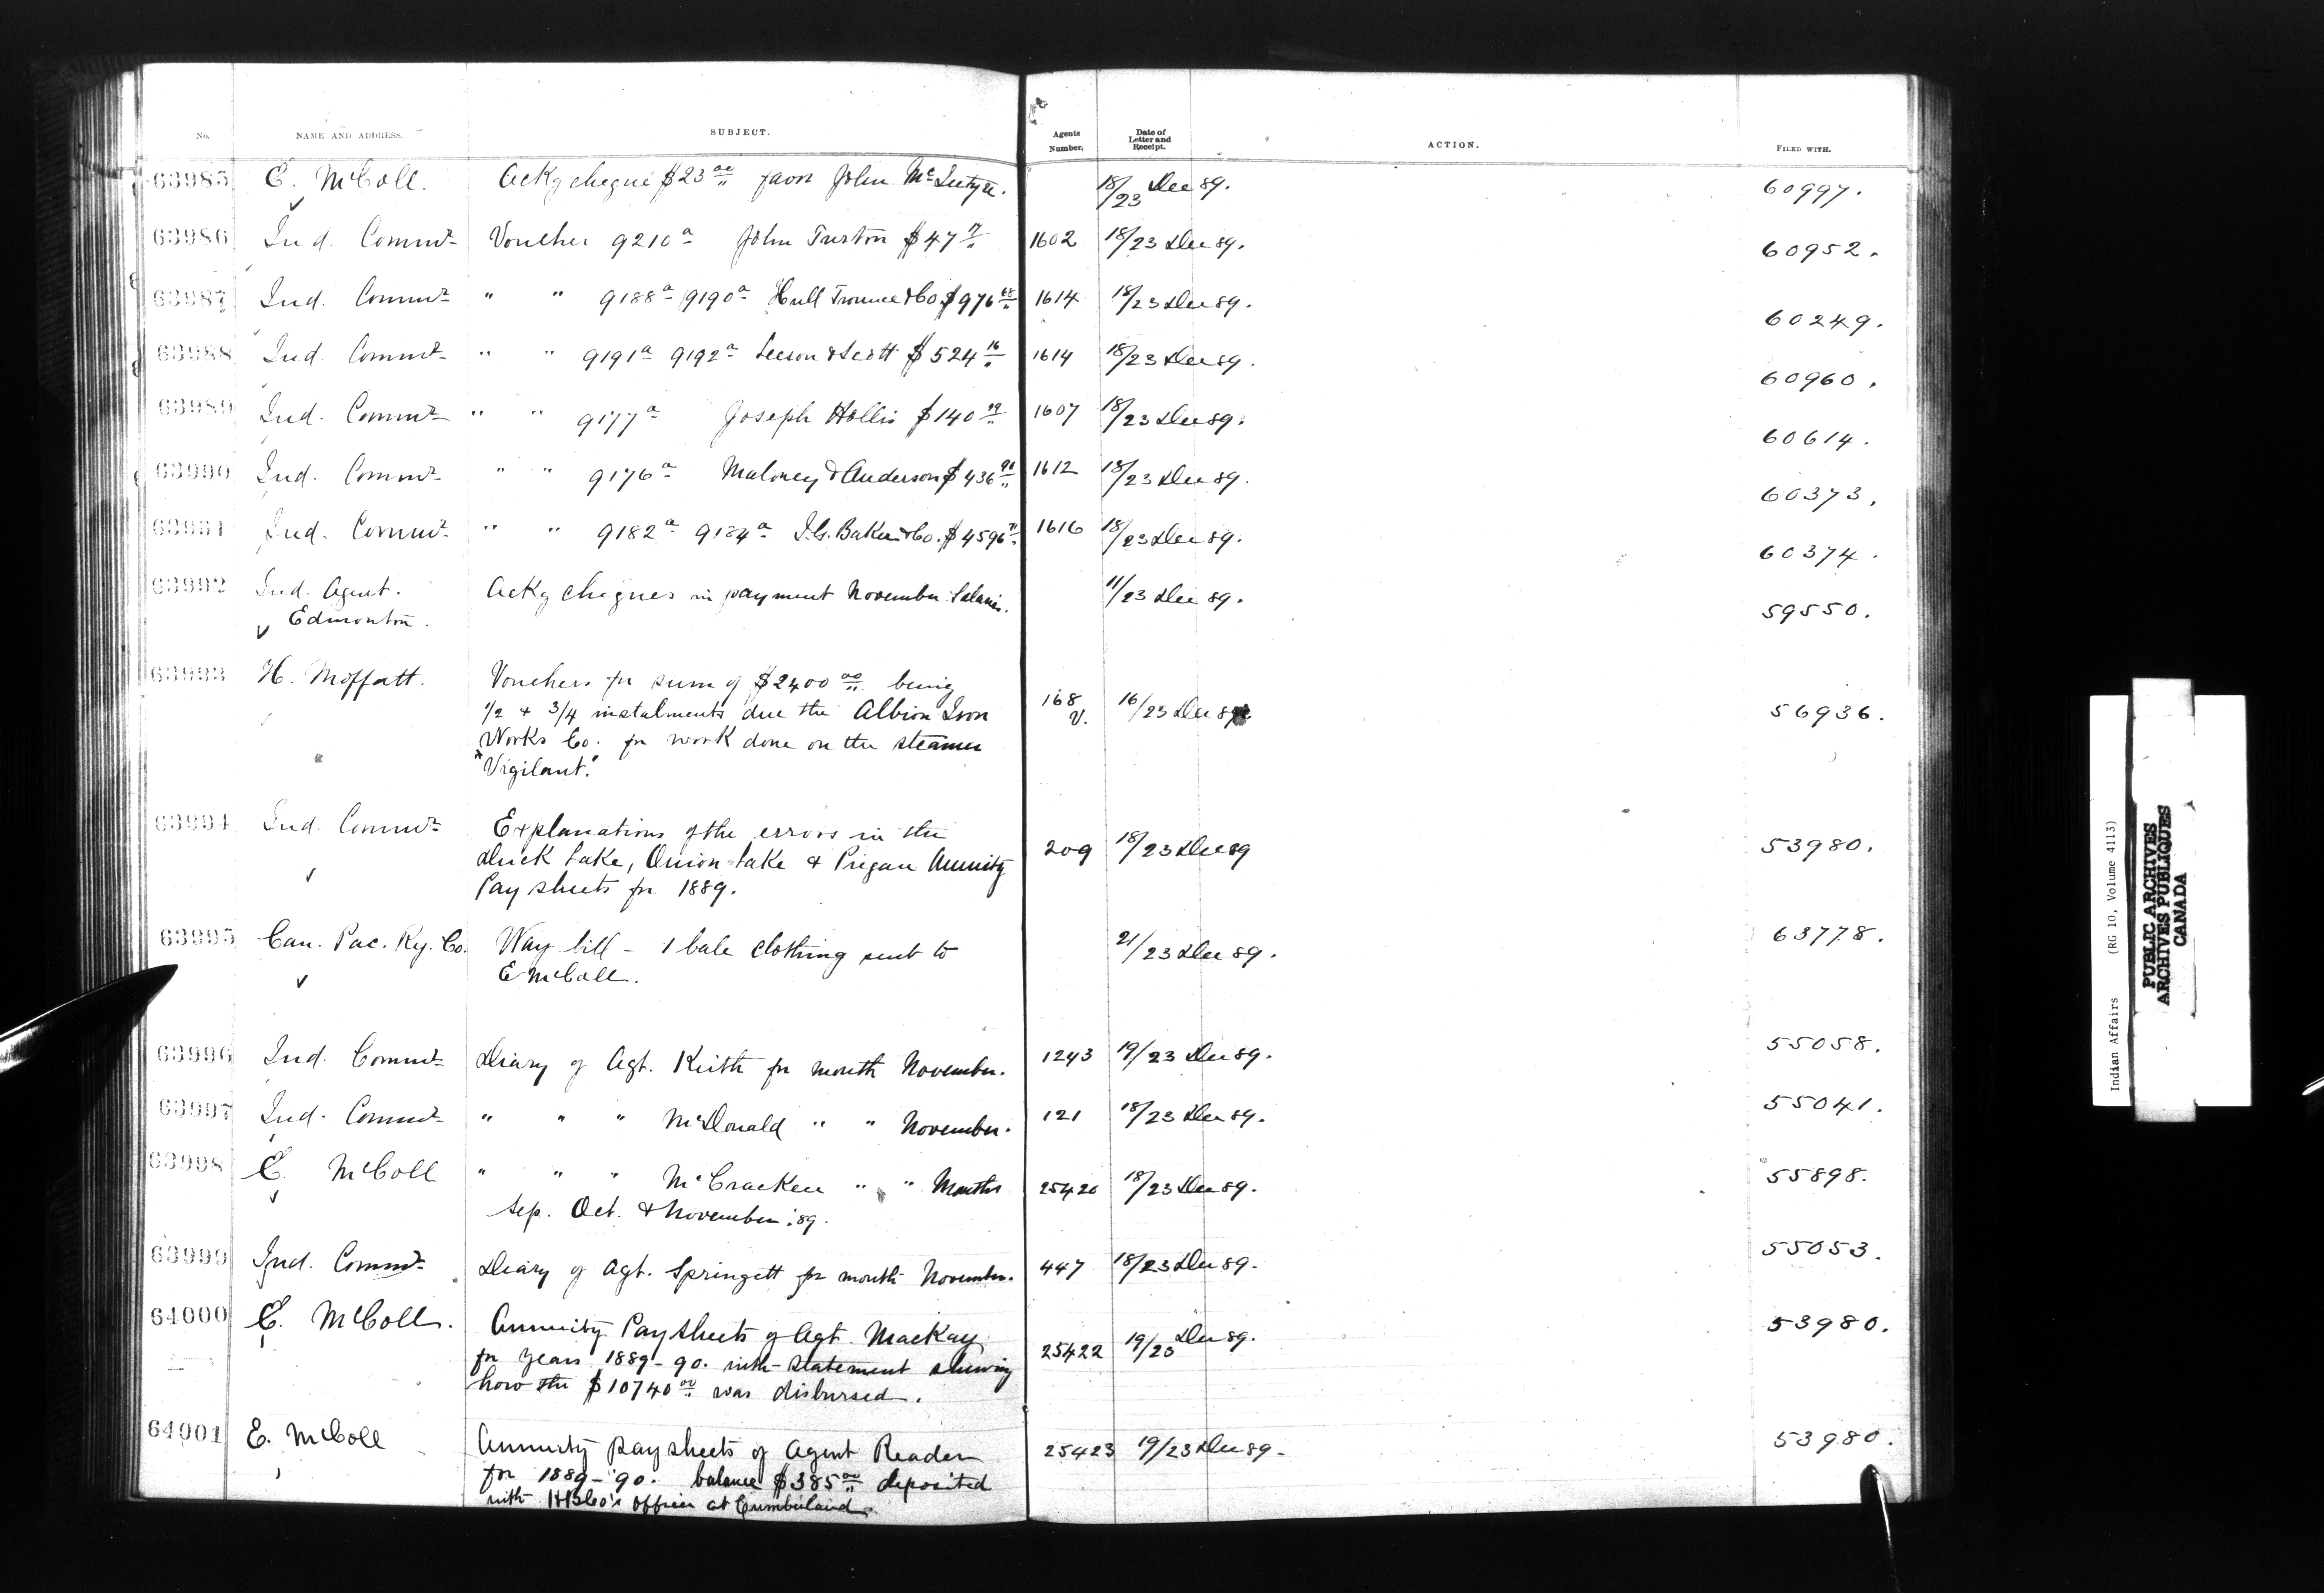 No. NAME AND ADDRESS. SUBJECT. Agents Number. Date of Letter and Receipt. ACTION. FILED WITH.
63985 E. McColl. Ackg cheque $23 00 favor John McIntyre. 18/23 Dec 89. 60997.
63986 Ind. Commr Voucher 9210a John Turston $47 1602 18/23 Dec 89. 60952.
63987 Ind. Commr " " 9188a 9190a Hull Trounce & Co $976 68 1614 18/23 Dec 89. 60249.
63988 Ind. Commr " " 9191a 9192a Leeson & Scott $524 16 1614 18/23 Dec 89. 60960.
63989 Ind. Commr " " 9177a Joseph Hollis $140 1607 18/23 Dec 89. 60614.
63990 Ind. Commr " " 9176a Maloney & Anderson $436 90 1612 18/23 Dec 89. 60373.
63991 Ind. Commr " " 9182a 9184a I.G. Baker & Co. $4596 1616 18/23 Dec 89. 60374.
63992 Ind. Agent. Ackg cheques in payment November Salaries. 11/23 Dec 89. 59550.
Edmonton.
63993 H. Moffatt. Vouchers for sum of $2400 00 being
1/2 & 3/4 instalments due the Albion Iron 168 V. 16/23 Dec 89 56936.
Works Co. for work done on the steamer
"Vigilant."
63994 Ind. Commr Explanations of the errors in the
Duck Lake, Onion Lake & Piegan Annuity 209 18/23 Dec 89 53980.
Pay sheets for 1889.
63995 Can. Pac. Ry. Co. Way bill - 1 bale clothing sent to 21/23 Dec 89. 63778.
E McColl.
63996 Ind. Commr Diary of Agt. Keith for month November. 1243 19/23 Dec 89. 55058.
63997 Ind. Commr " " " McDonald " " November. 121 18/23 Dec 89. 55041.
63998 E. McColl " " " McCracken " " Months 25420 18/23 Dec 89. 55898.
Sep. Oct. & November '89.
63999 Ind. Commr Diary of Agt. Springett for month November. 447 18/23 Dec 89. 55053.
64000 E. McColl. Annuity Pay sheets of Agt. MacKay 25422 19/23 Dec 89. 53980.
for years 1889-90. with statement shewing
how the $10740 00 was disbursed.
64001 E. McColl Annuity pay sheets of Agent Reader 25423 19/23 Dec 89- 53980.
for 1889-'90. balance $385 00 deposited
with HBCo's officer at Cumberland.
Indian Affairs (RG 10, Volume 4113)
PUBLIC ARCHIVES
ARCHIVES PUBLIQUES
CANADA